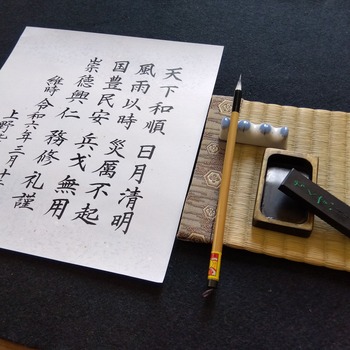 天下和順 日月清明
風雨以時 災厲不起
国豊民安 兵戈無用
崇徳興仁 務修礼謹
維時令和六年三月十
上野